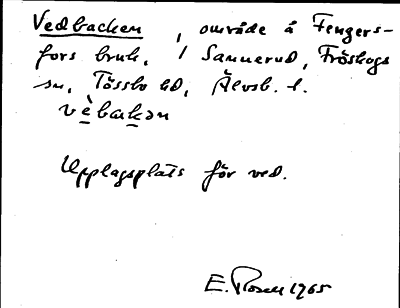 Vedbacken, område å Fengers-
fors bruk, / Sannerud, Fröskogs
sn, Tössbo hd, Älvsb. l.
vèbackən
Upplagsplats för ved.
E. Rosell 1965